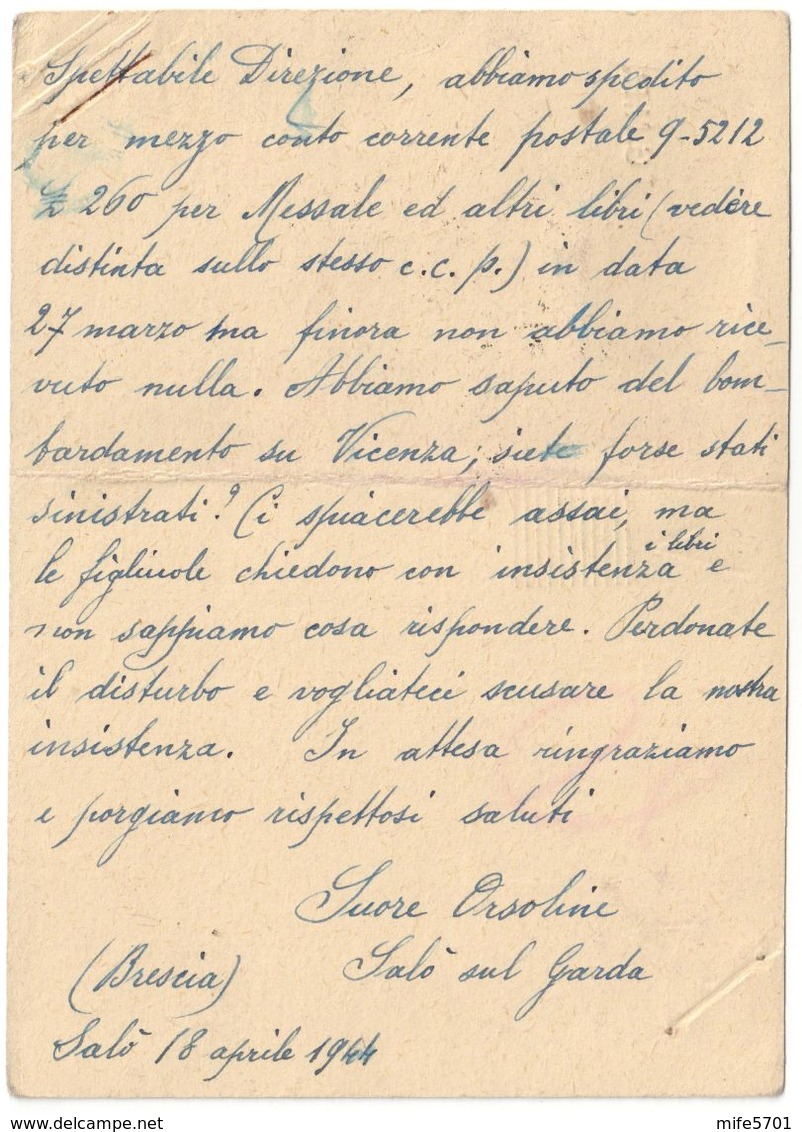 Spettabile Direzione, abbiamo spedito
per mezzo conto corrente postale 9-5212
£ 260 per Messale ed altri libri (vedere
distinta sullo stesso c.c.p.) in data
27 marzo ma finora non abbiamo rice-
vuto nulla. Abbiamo saputo del bom-
bardamento su Vicenza; siete forse stati
sinistrati? Ci spiacerebbe assai, ma
le figliuole chiedono con insistenza i libri e
non sappiamo cosa rispondere. Perdonate
il disturbo e vogliateci scusare la nostra
insistenza. In attesa ringraziamo
e porgiamo rispettosi saluti
Suore Orsoline
(Brescia) Salò sul Garda
Salò 18 aprile 1944
delcampe.net
mife5701